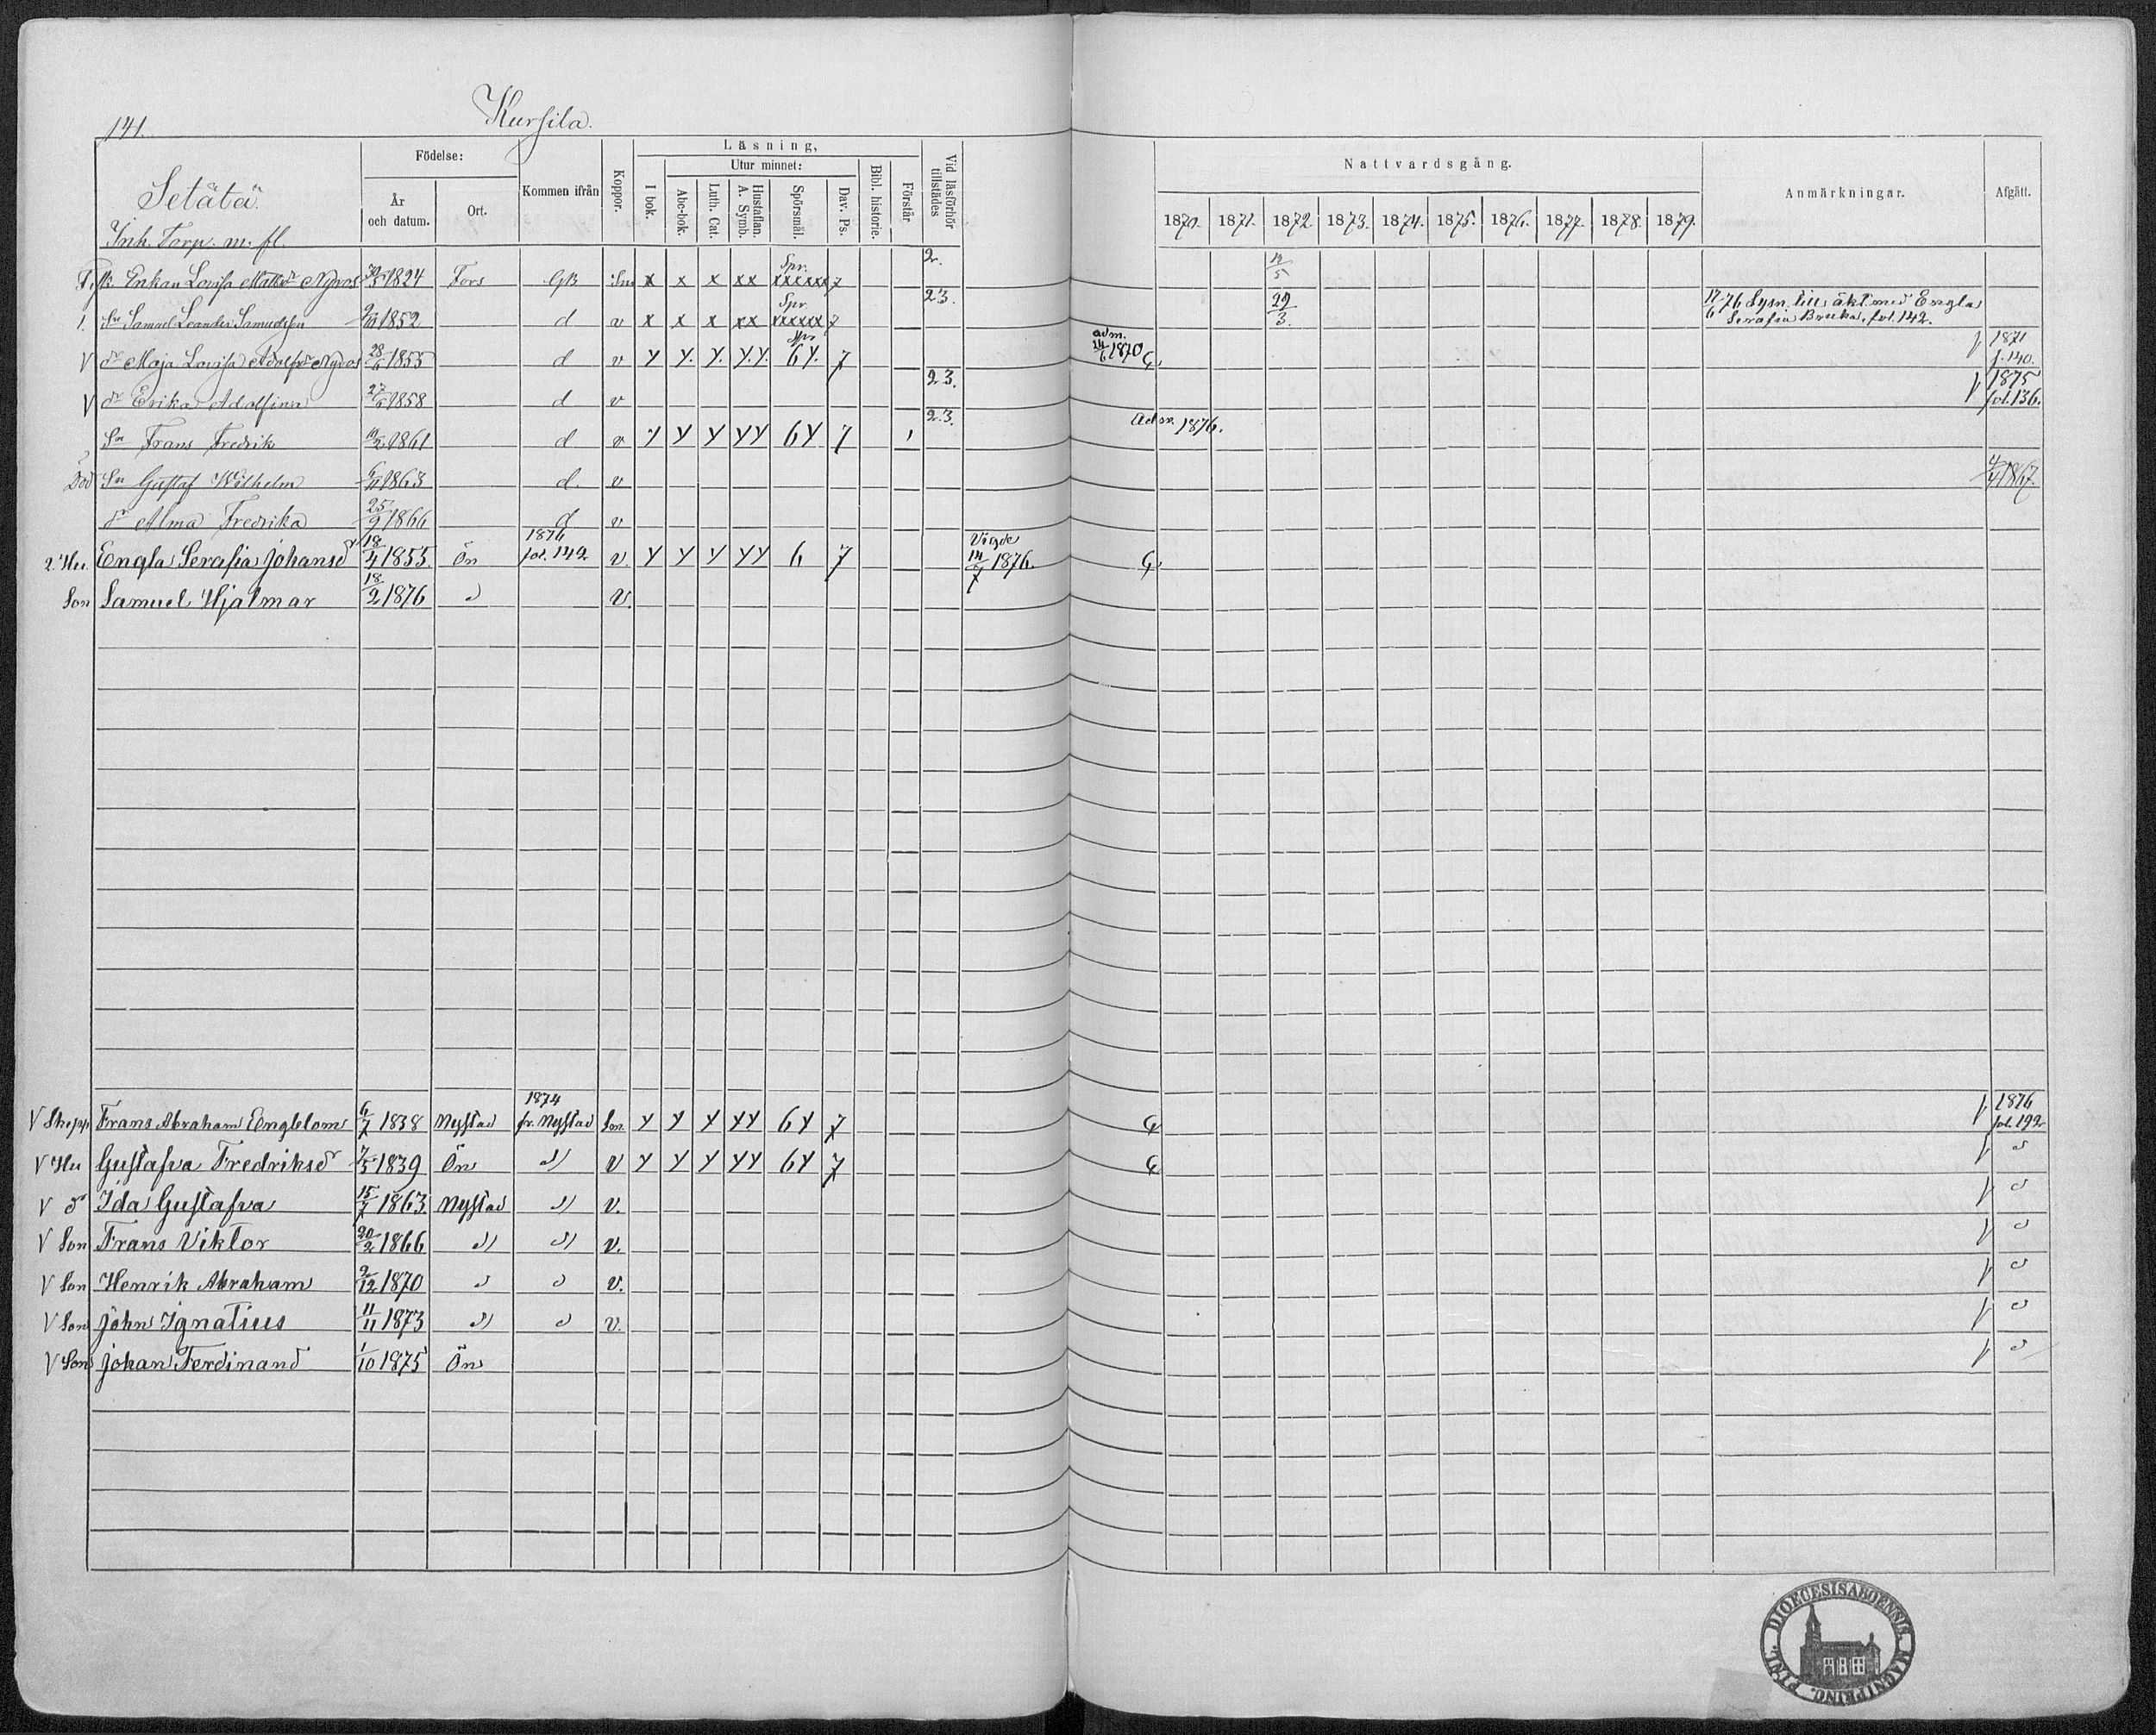 141.
Kursila.
Setätä.
Inh. Torp. m. fl.
Födelse:
År och datum.
Ort.
Kommen ifrån
Koppor.
Läsning,
I bok.
Utur minnet:
Abc-bok.
Luth. Cat.
Hustaflan. A. Symb.
Spörsmål.
Dav. Ps.
Bibl. historie.
Förstår
Vid läsförhör tillstädes
Nattvardsgång.
1870. 1871. 1872. 1873. 1874. 1875. 1876. 1877. 1878. 1879.
Anmärkningar.
Afgått.
Enkan Lovisa 1824 Fors GB x x x xx Spr. xxxxxx 7 2. 12/5
Sn Samuel Leander Samuelsson 1852 d v x x x xx Spr. xxxxx 7 23. 29/3. 17/6 76 Lysn. till äkt. med Engla Serafia fol. 142.
V dr Maja Lovisa 28/6 1855 d v y y. y. y.y. 6y. 7 adm. 1870 V 1871 f. 140.
V dr Erika Adolfina 1858 d v 23. V 1875 fol. 136.
Sn Frans Fredrik 1861 d v y y y yy 6y 7 23. Adm. 1876.
Död Sn Gustaf Wilhelm 1863 d. v 1867.
dr Alma Fredrika 25/9 1866 d v
2. Hu. Engla Serafia Johansdr 18/4 1855. Ön 1876 fol. 142 v. y y y yy 6 7 Vigde 14/7 1876.
Son Samuel Hjalmar 18/2 1876 v.
V Skepp Frans Abraham Englblom 6/7 1838 Nystad 1874 fr. Nystad y y y yy 6y 7 V 1876 fol. 192
V Hu Gustafva Fredriksdr 7/5 1839 Ön v y y y yy 6y 7 V
V dr Ida Gustafva 15/7 1863 Nystad v. V
V Son Frans Viktor 20/2 1866 v. V
V Son Henrik Abraham 2/12 1870 v. V
V Son John Ignatius 11/11 1873 v. V
V Son Johan Ferdinand 1/10 1875 Ön V